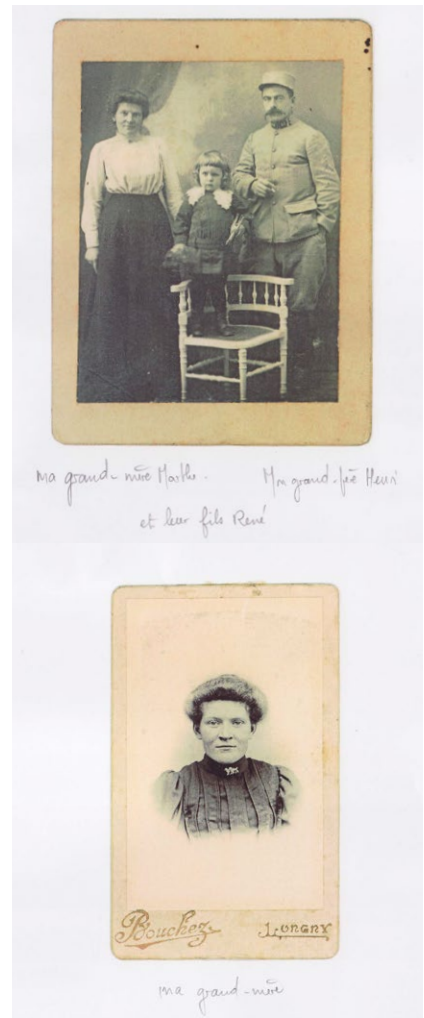 ma grand-mère Marthe. Mon grand-père Henri
et leur fils René
Bouchez LONGNY
ma grand-mère